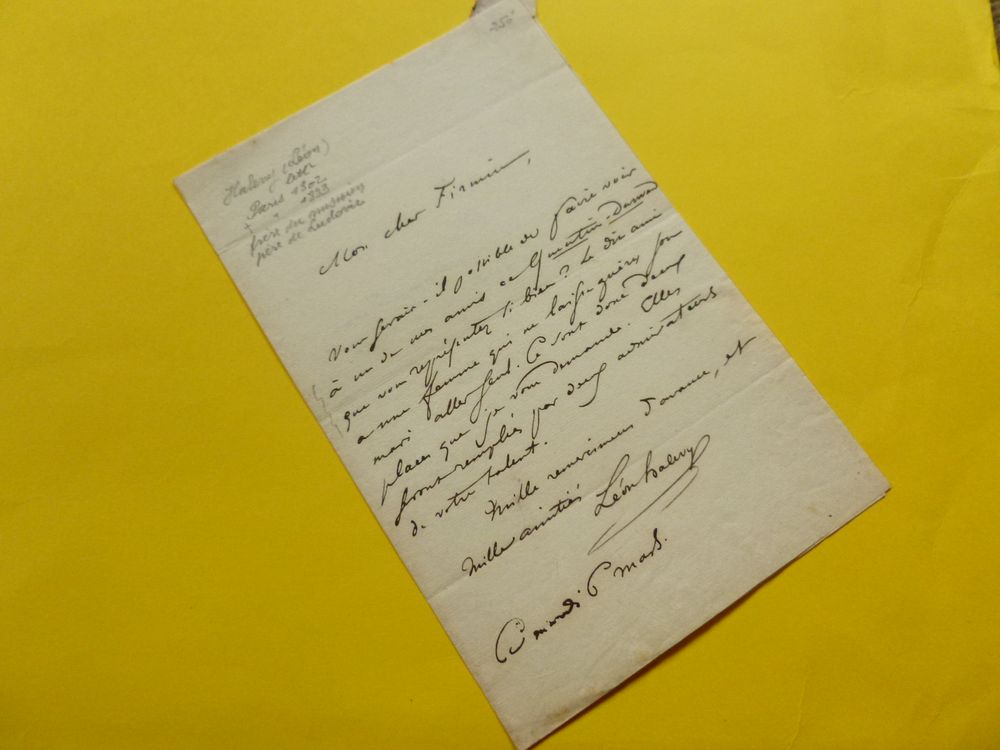 250
Halevy (Léon)
litt
Paris 1802
+ " 1883
frère du musicien
père de Ludovic
Mon cher Firmin,
Vous serait-il possible de faire voir
à un de mes amis ce Quentin-Durward
que vous représentez si bien? Le dit ami
a une femme qui ne laisse guères son
mari aller seul. Ce sont donc deux
places que je vous demande. Elles
seront remplies par deux admirateurs
de votre talent.
Mille remerciemens d'avance, et
mille amitiés Léon halevy
Ce mardi 6 mars.